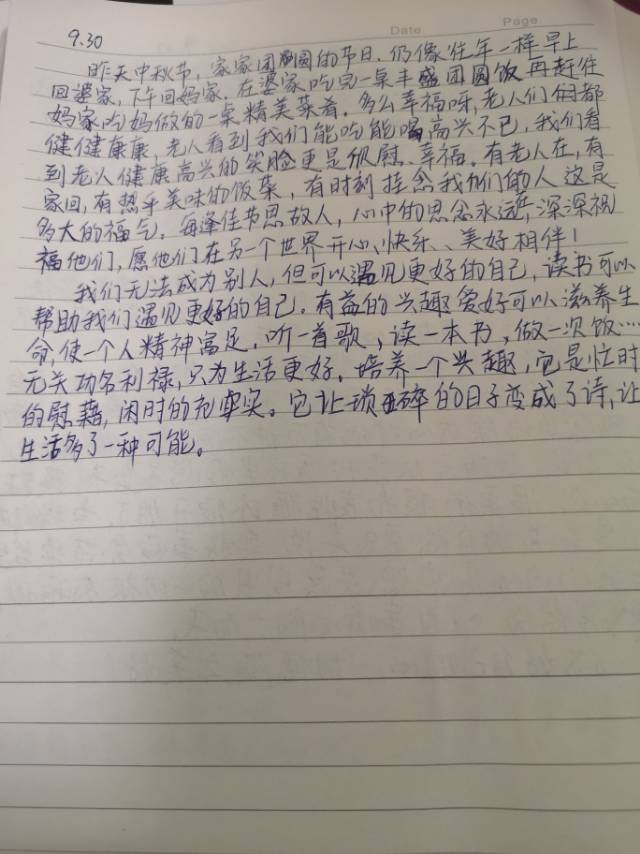 Date
Page
9.30
昨天中秋节，家家团圆的节日。仍像往年一样早上
回婆家，下午回妈家。在婆家吃完一桌丰盛团圆饭再赶往
妈家吃妈做的一桌精美菜肴。多么幸福呀，老人们都
健健康康，老人看到我们能吃能喝高兴不已，我们看
到老人健康高兴的笑脸更是欣慰、幸福。有老人在，有
家回，有热乎美味的饭菜，有时刻挂念我们的人这是
多大的福气。每逢佳节思故人，心中的思念永远在，深深祝
福他们，愿他们在另一个世界开心、快乐、美好相伴！
我们无法成为别人，但可以遇见更好的自己，读书可以
帮助我们遇见更好的自己。有益的兴趣爱好可以滋养生
命，使一个人精神富足。听一首歌，读一本书，做一次饭……
无关功名利禄，只为生活更好。培养一个兴趣，它是忙时
的慰藉，闲时的充实。它让琐碎的日子变成了诗，让
生活多了一种可能。